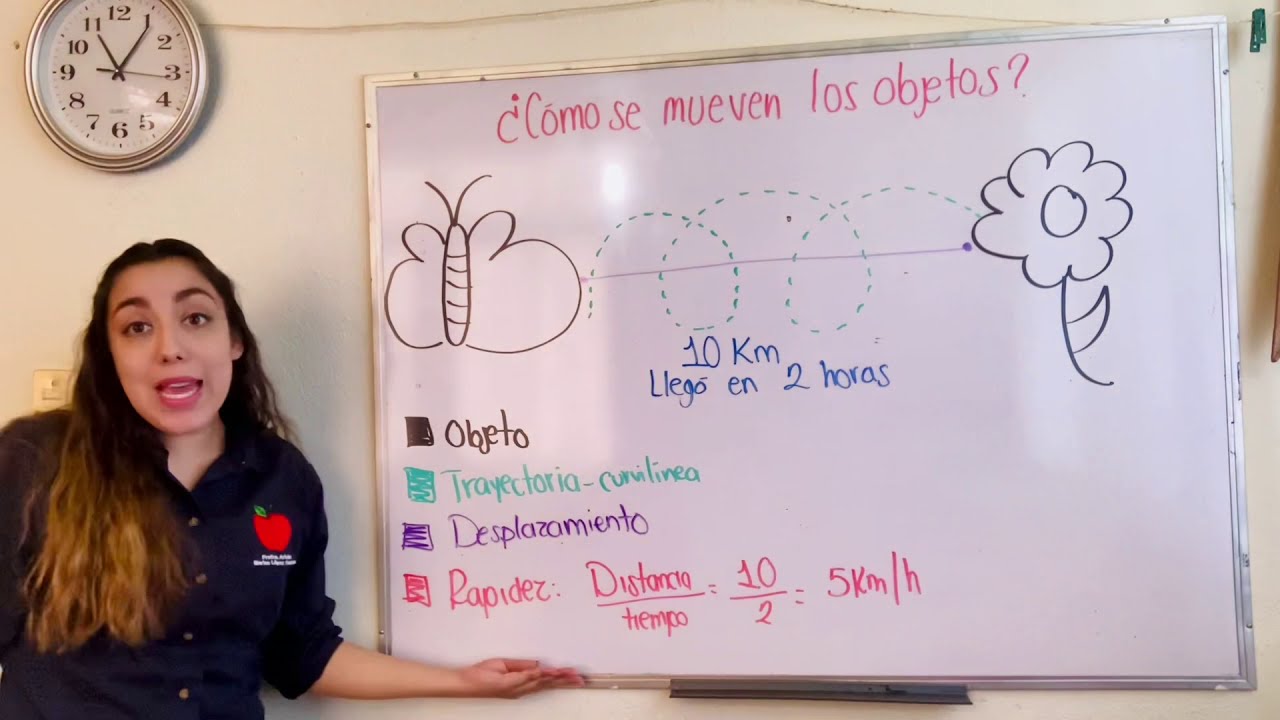 12
11 1
10 2
9 3
8 4
7 5
6
QUARTZ
¿Cómo se mueven los objetos?
10 Km
Llegó en 2 horas
Objeto
Trayectoria-curvilínea
Desplazamiento
Rapidez: Distancia/tiempo = 10/2 = 5Km/h
Profra.